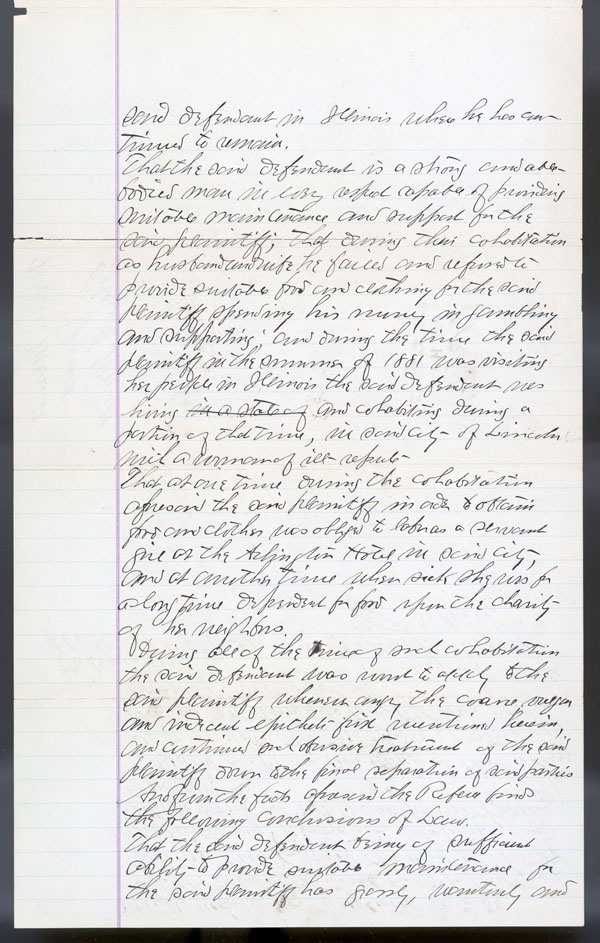 said defendant in Illinois where he has con-
tinued to remain.
That the said defendant is a strong and able-
bodied man in every respect capable of providing
suitable maintenance and support for the
said plaintiff; that during their cohabitation
as husband and wife he failed and refused to
provide suitable food and clothing for the said
plaintiff spending his money in gambling
and supporting; and during the time the said
plaintiff in the summer of 1881 was visiting
her people in Illinois the said defendant was
living in a state of and cohabiting during a
portion of that time, in said city of Lincoln
with a woman of ill repute
That at one time during the cohabitation
aforesaid the said plaintiff in order to obtain
food and clothes was obliged to labor as a servant
girl at the Arlington Hotel in said city,
and at another time when sick she was for
a long time dependent for food upon the charity
of her neighbors.
During all of the time of said cohabitation
the said defendant was wont to apply to the
said plaintiff whenever angry the coarse, vulgar
and indecent epithets first mentioned herein,
and continued such abusive treatment of the said
plaintiff down to the final separation of said parties
And from the facts aforesaid the Referee finds
the following conclusions of Law.
That the said defendant being of sufficient
ability to provide suitable maintenance for
the said plaintiff has grossly, wantonly and